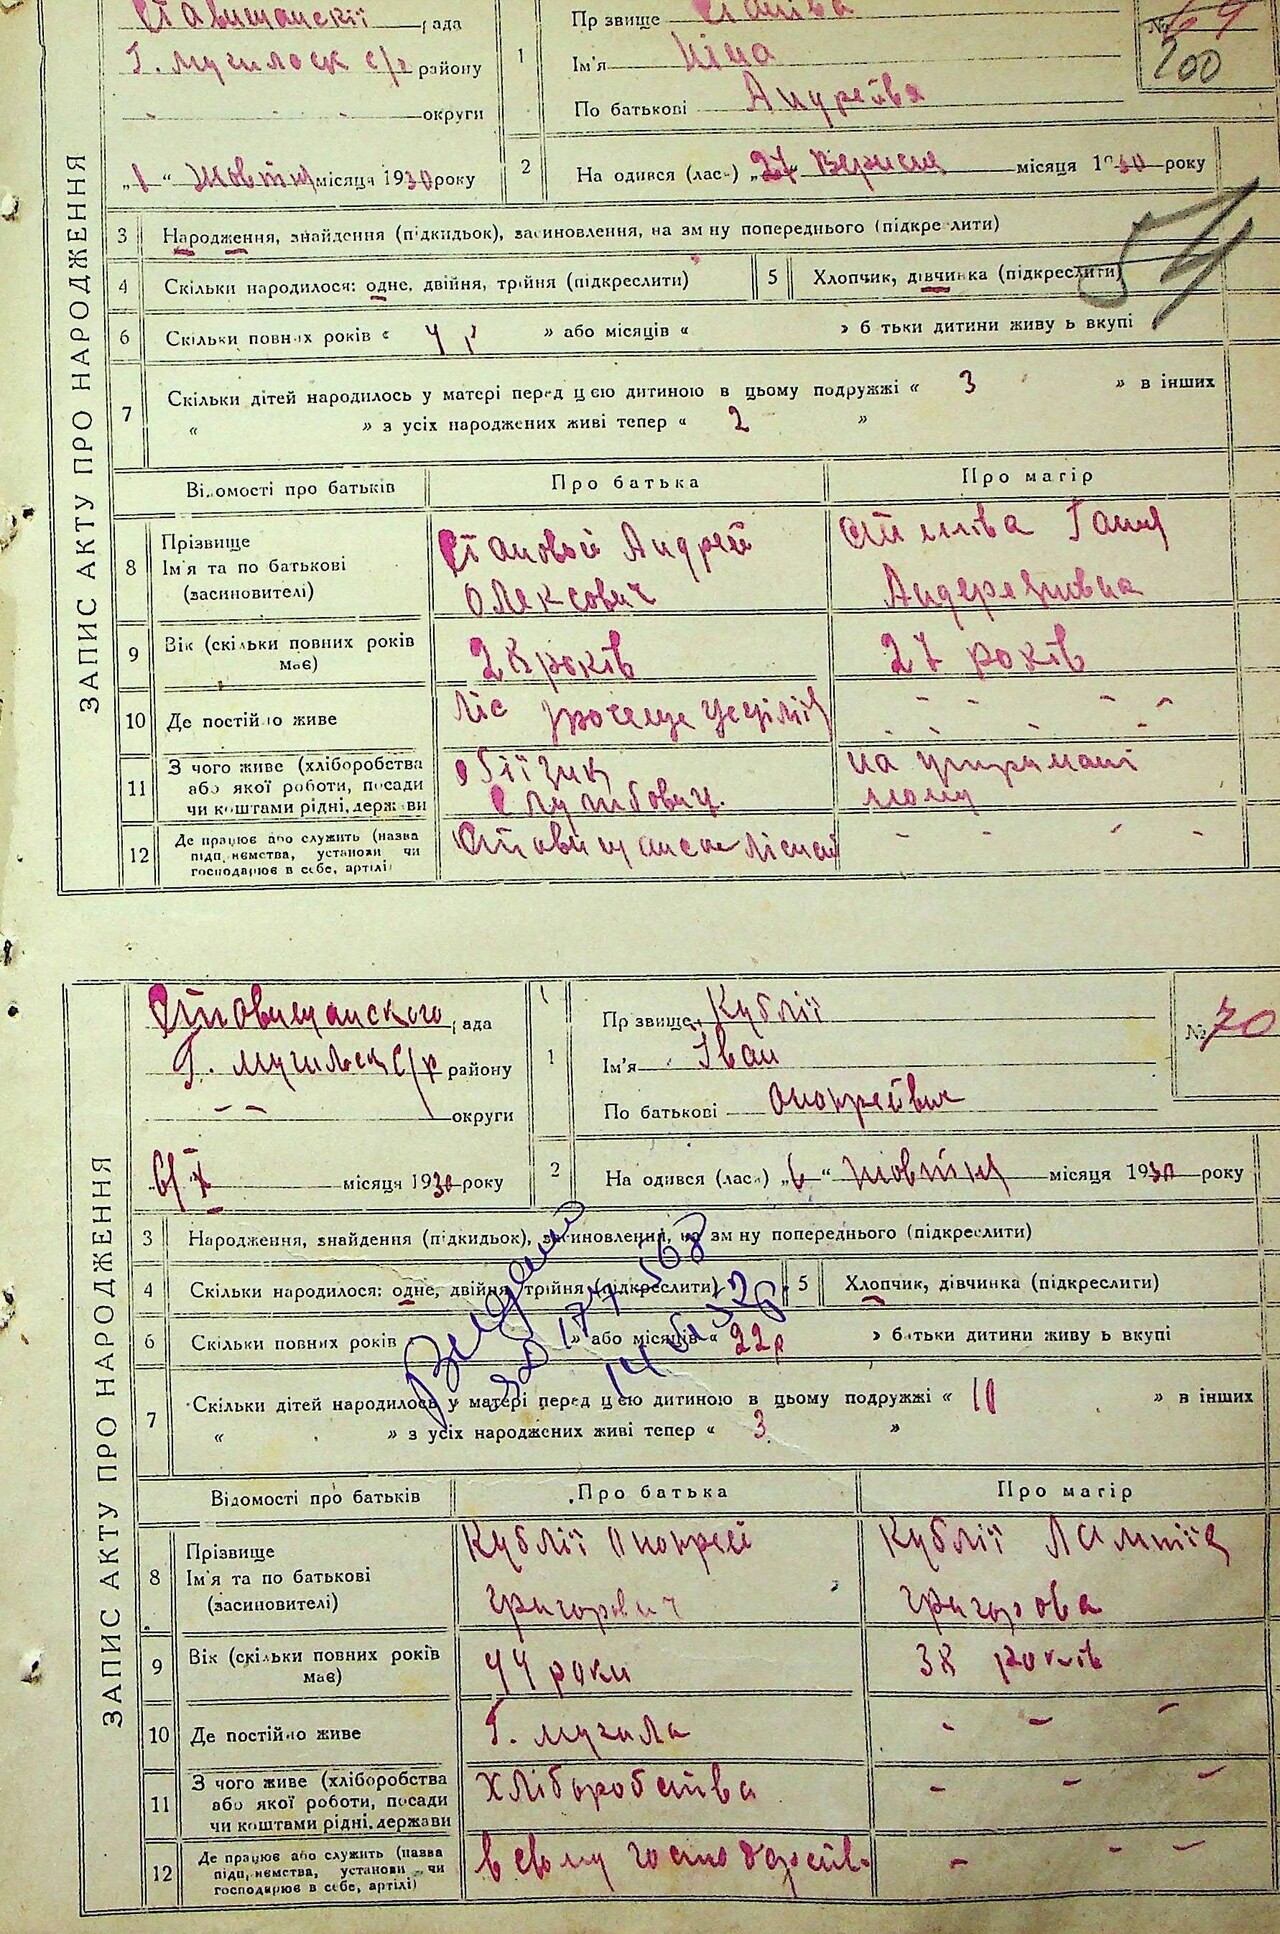 ЗАПИС АКТУ ПРО НАРОДЖЕННЯ
рада
Г. мугилоск с/р району
округи
„1“ Жовтня місяця 1930 року
1
Пр звище
Ім'я Ніна
По батькові Андрейвя
№ 69
200
2
На одився (лась) „27“ Вересня місяця 1930 року
54
3 Народження, знайдення (підкидьок), засиновлення, на зм ну попереднього (підкре лити)
4 Скільки народилося: одне, двійня, трійня (підкреслити)
5 Хлопчик, дівчинка (підкреслити)
6 Скільки повних років « 4 р » або місяців « » б тьки дитини живу ь вкупі
7 Скільки дітей народилось у матері перед цією дитиною в цьому подружжі « 3 » в інших
« » з усіх народжених живі тепер « 2 »
Відомості про батьків Про батька Про матір
8 Прізвище
Ім'я та по батькові
(засиновителі)
Становый Андрей
Олексович
Ганя
9 Вік (скільки повних років
має)
28 років
27 років
10 Де постійно живе
ліс урочище
11 З чого живе (хліборобства
або якої роботи, посади
чи коштами рідні, держави
на утримані
12 Де працює або служить (назва
підприємства, установи чи
господарює в себе, артілі)
ЗАПИС АКТУ ПРО НАРОДЖЕННЯ
Ставищанского рада
Г. мугильск с/р району
округи
6/X місяця 1930 року
1
Пр звище Кублії
Ім'я Іван
По батькові Онопрейвич
№ 70
2
На одився (лась) „6“ жовтня місяця 1930 року
3 Народження, знайдення (підкидьок), засиновлення, на зм ну попереднього (підкреслити)
4 Скільки народилося: одне, двійня, трійня (підкреслити)
5 Хлопчик, дівчинка (підкреслиги)
6 Скільки повних років « » або місяців « 22р » батьки дитини живу ь вкупі
7 Скільки дітей народилось у матері перед цією дитиною в цьому подружжі « 10 » в інших
« » з усіх народжених живі тепер « 3 »
Відомості про батьків Про батька Про матір
8 Прізвище
Ім'я та по батькові
(засиновителі)
Кублії Онопрей
григорович
Кублії
григорова
9 Вік (скільки повних років
має)
44 роки
38 років
10 Де постійно живе
Г. мугила
11 З чого живе (хліборобства
або якої роботи, посади
чи коштами рідні, держави
хліборобства
12 Де працює або служить (назва
підприємства, установи чи
господарює в себе, артілі)
в свому господарств.